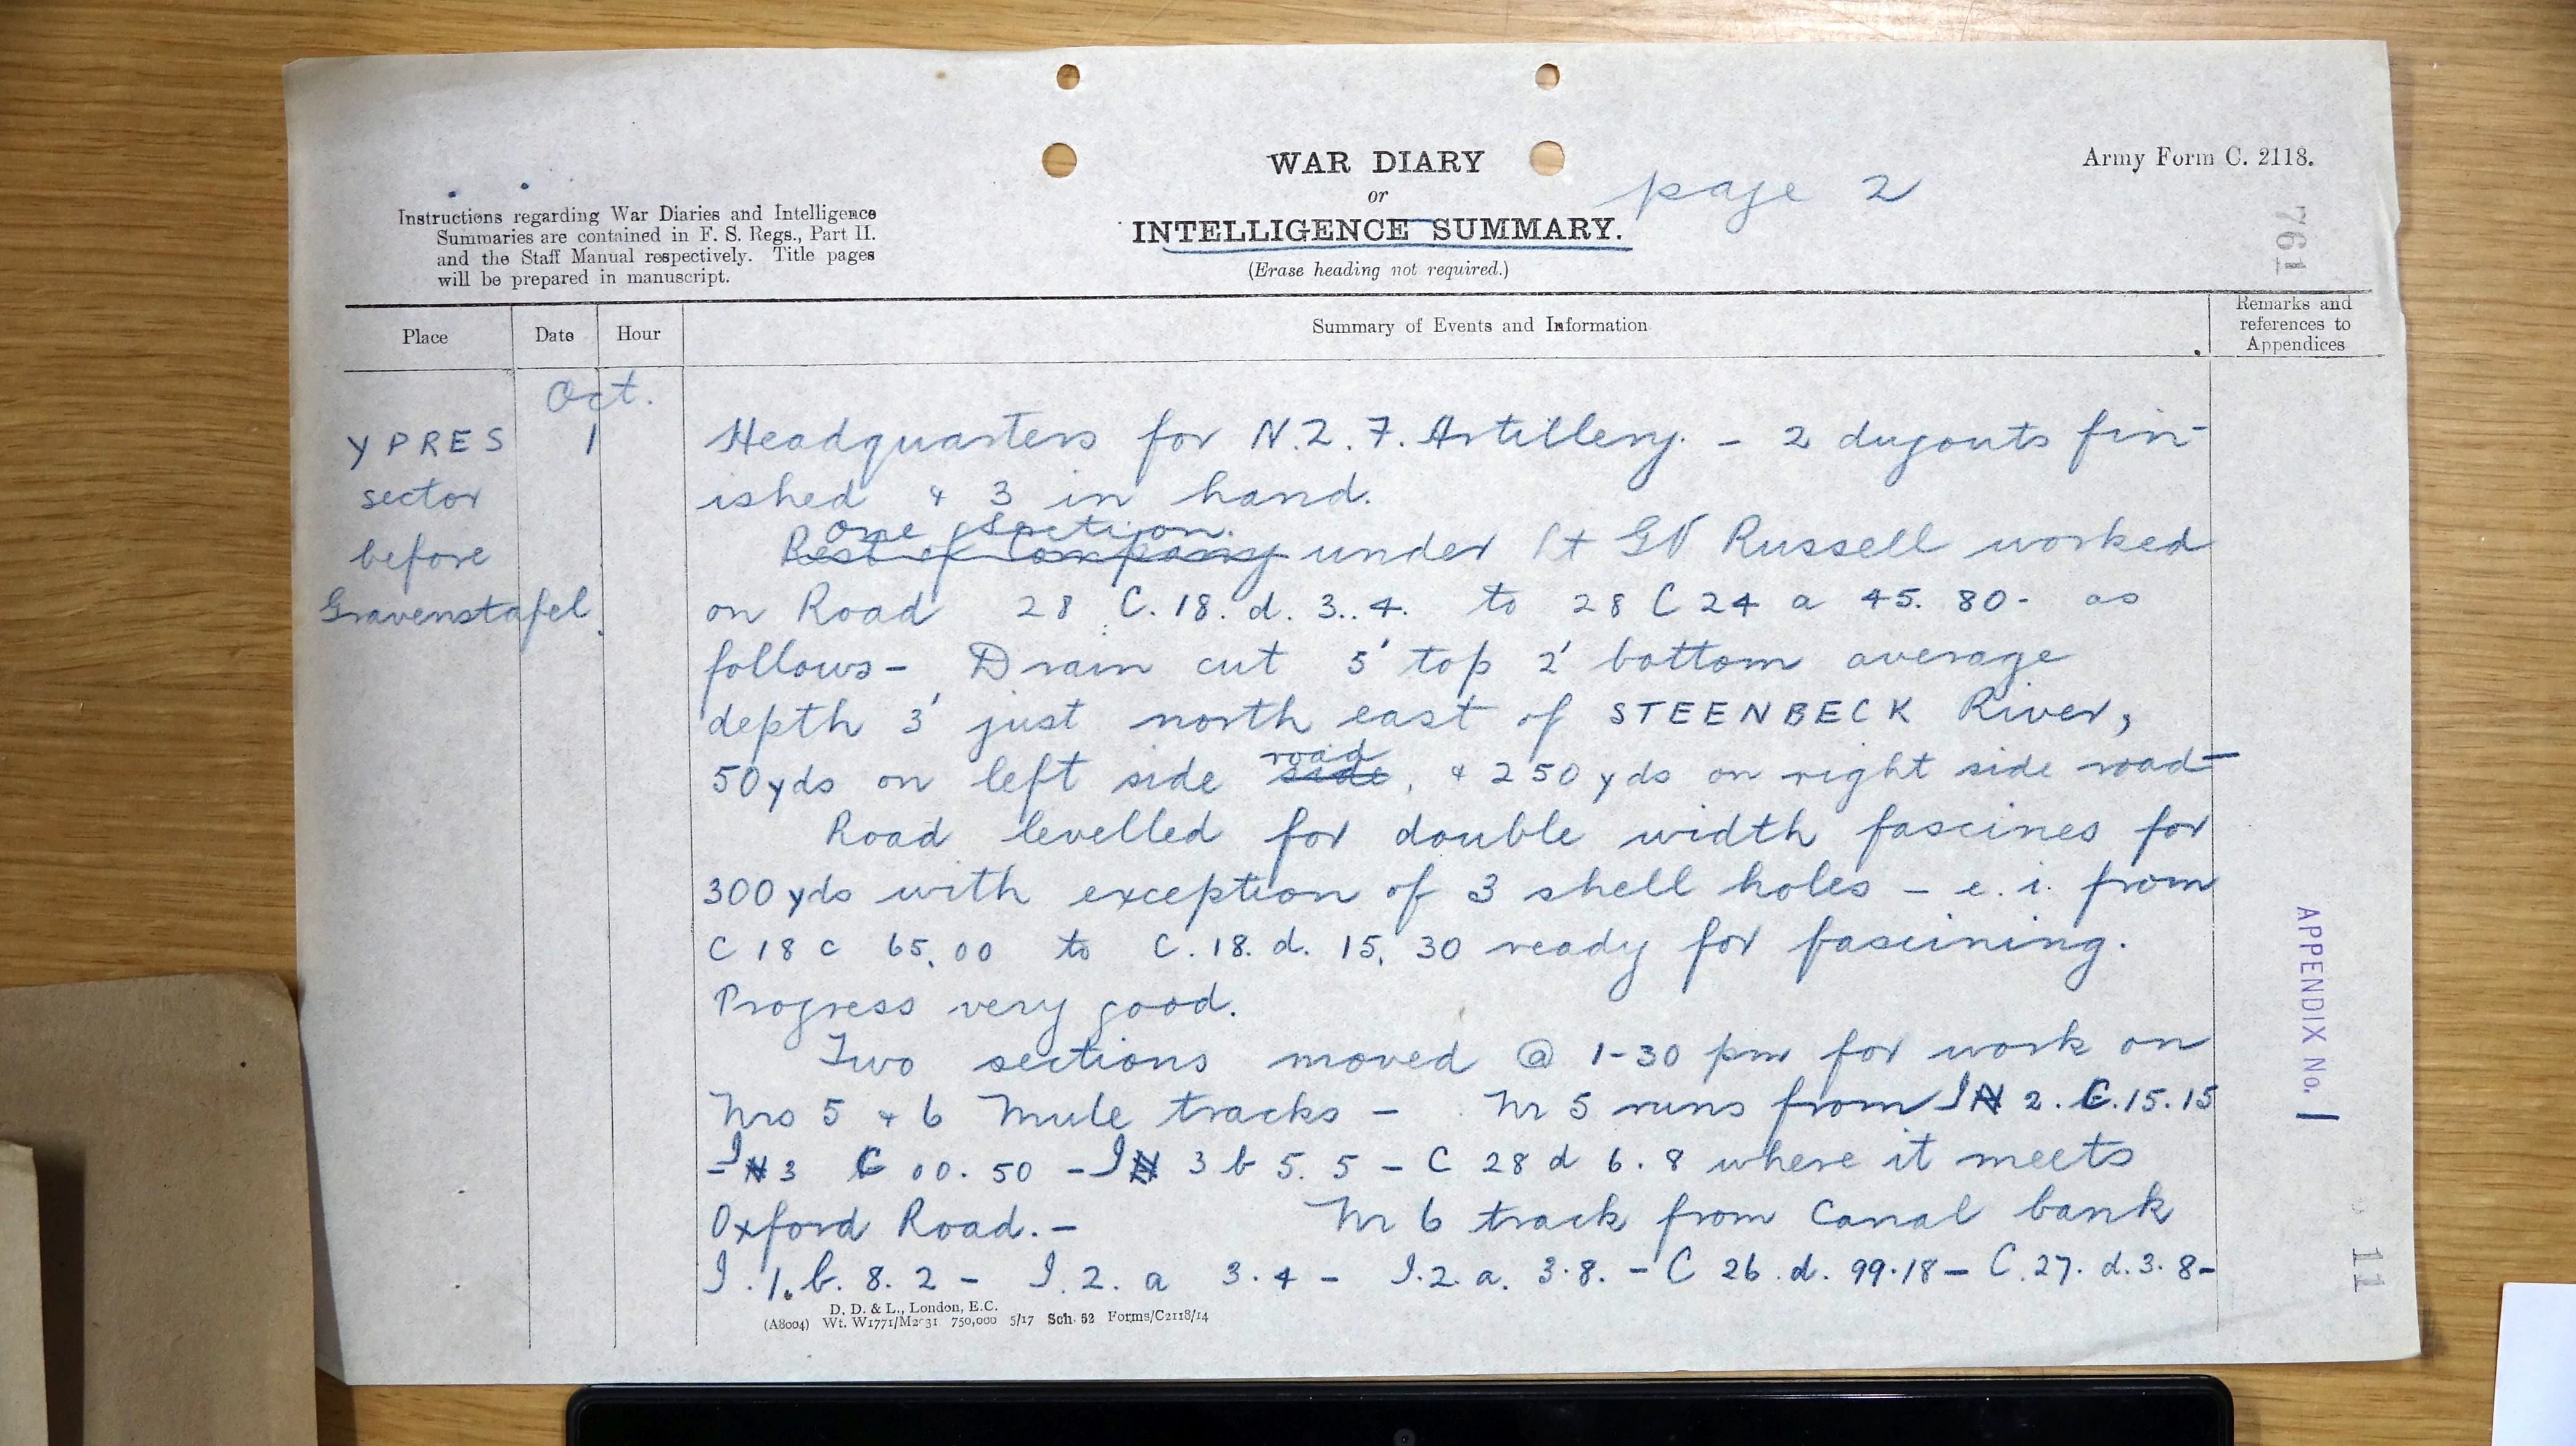 WAR DIARY
or
INTELLIGENCE SUMMARY.
(Erase heading not required.)
page 2
Army Form C. 2118.
761
Instructions regarding War Diaries and Intelligence
Summaries are contained in F. S. Regs., Part II.
and the Staff Manual respectively. Title pages
will be prepared in manuscript.
Place
Date
Hour
Summary of Events and Information
Remarks and
references to
Appendices
Oct.
YPRES 1
sector
before
Gravenstafel.
Headquarters for N.Z.F. Artillery. - 2 dugouts fin-
ished & 3 in hand.
One Section.
Rest of Company under Lt GV Russell worked
on Road 28 C. 18. d. 3..4. to 28 C 24 a 45. 80- as
follows- Drain cut 5' top 2' bottom average
depth 3' just north east of STEENBECK River,
road
50yds on left side side, & 250yds on right side road-
Road levelled for double width fascines for
300yds with exception of 3 shell holes - e. i. from
C 18 c 65.00 to C. 18. d. 15, 30 ready for fascining.
Progress very good.
Two sections moved @ 1-30 pm for work on
Nrs 5 & 6 Mule tracks - Nr 5 runs from I N 2. C. 15. 15
- I N 3 C 00. 50 - I N 3 b 5. 5 - C 28 d 6. 8 where it meets
Oxford Road. - Nr 6 track from Canal bank
I. 1. b. 8. 2 - I. 2. a 3. 4 - I. 2. a. 3.8. - C 26. d. 99.18 - C. 27. d. 3. 8-
APPENDIX No. 1
11
D. D. & L., London, E.C.
(A8004) Wt. W1771/M2031 750,000 5/17 Sch. 52 Forms/C2118/14